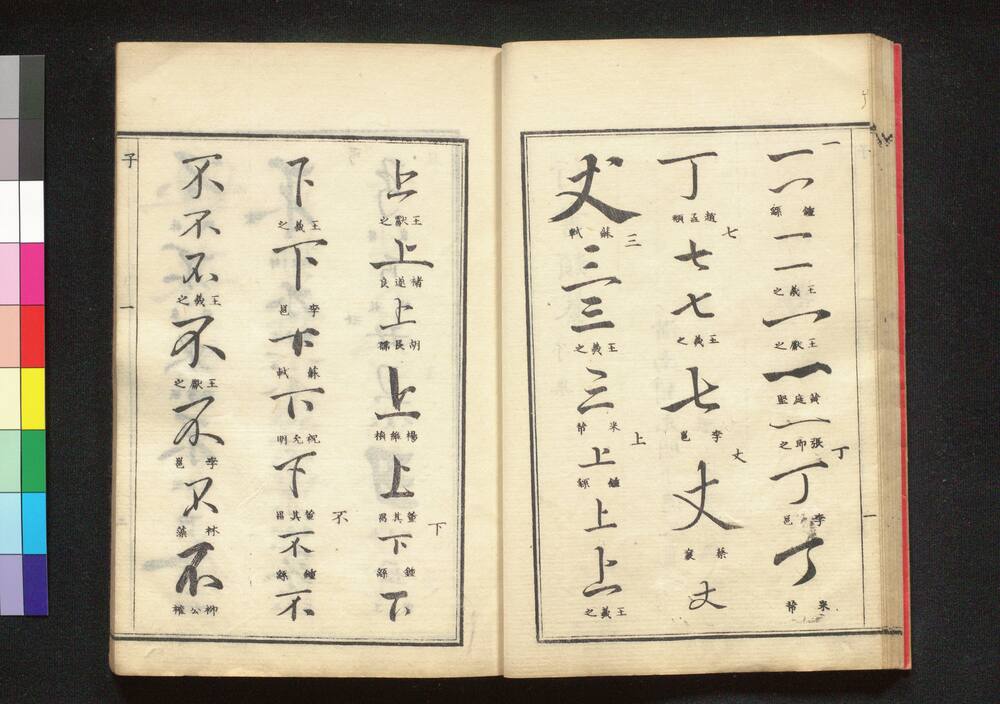 一
一 一 鍾繇
一 一 王羲之
一 王獻之
一 黃庭堅
一 張即之
丁
丁 李邕
丁 米芾
丁 趙孟頫
七
七 七 王羲之
七 李邕
丈
丈 蔡襄
丈
丈 蘇軾
三
三 三 王羲之
三 米芾
上
上 鍾繇
上 上 王羲之
一
上 王獻之
上 褚遂良
上 胡長孺
上 楊維楨
上 董其昌
下
下 鍾繇
下
下 王羲之
下 李邕
下 蘇軾
下 祝允明
下 董其昌
不
不 鍾繇
不
不 不 不 王羲之
不 王獻之
不 李邕
不 林藻
不 柳公權
子
一